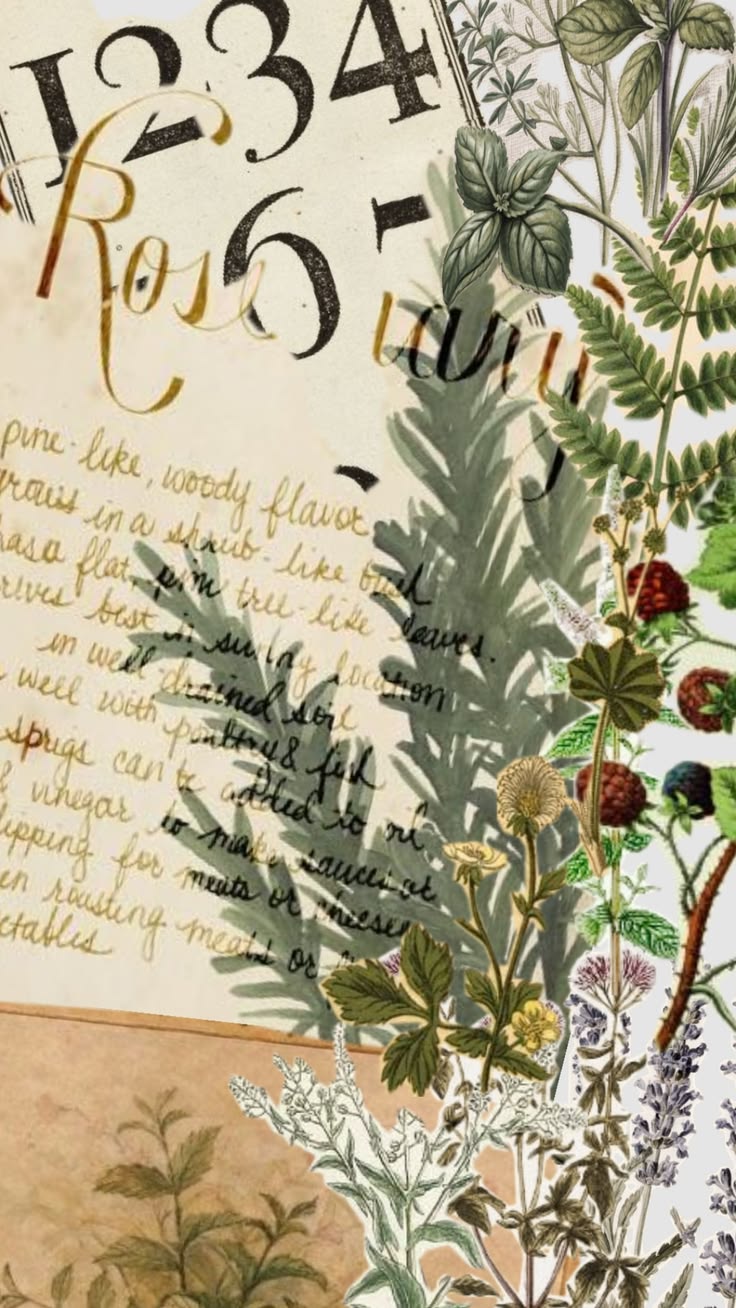 1234
6
Rose
ary
pine-like, woody flavor
grows in a shrub-like bush
has a flat, pine tree-like leaves.
best in sunny location
in well drained soil
well with poultry & fish
sprigs can be added to oil
& vinegar to make sauces or
dipping for meats or cheeses
roasting meats or